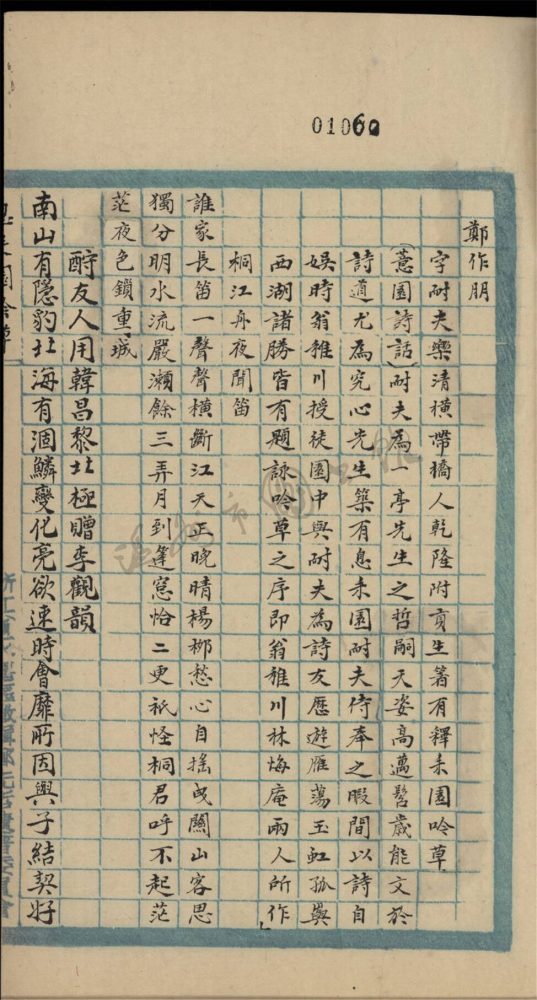 01060
鄭作朋
字耐夫樂清橫帶橋人乾隆附貢生箸有釋耒園吟草
(薏園詩話)耐夫為一亭先生之哲嗣天姿高邁髫歲能文於
詩道尤為究心先生築有息耒園耐夫侍奉之暇間以詩自
娛時翁雒川授徒園中與耐夫為詩友歷遊雁蕩玉虹孤嶼
西湖諸勝皆有題詠吟草之序即翁雒川林悔庵兩人所作
桐江舟夜聞笛
誰家長笛一聲聲橫斷江天正晚晴楊柳愁心自搖曳關山客思
獨分明水流嚴瀨餘三弄月到篷窓恰二更祇怪桐君呼不起茫
茫夜色鎖重城
酧友人用韓昌黎北極贈李觀韻
南山有隱豹北海有涸鱗變化亮欲速時會靡所因與子結契好